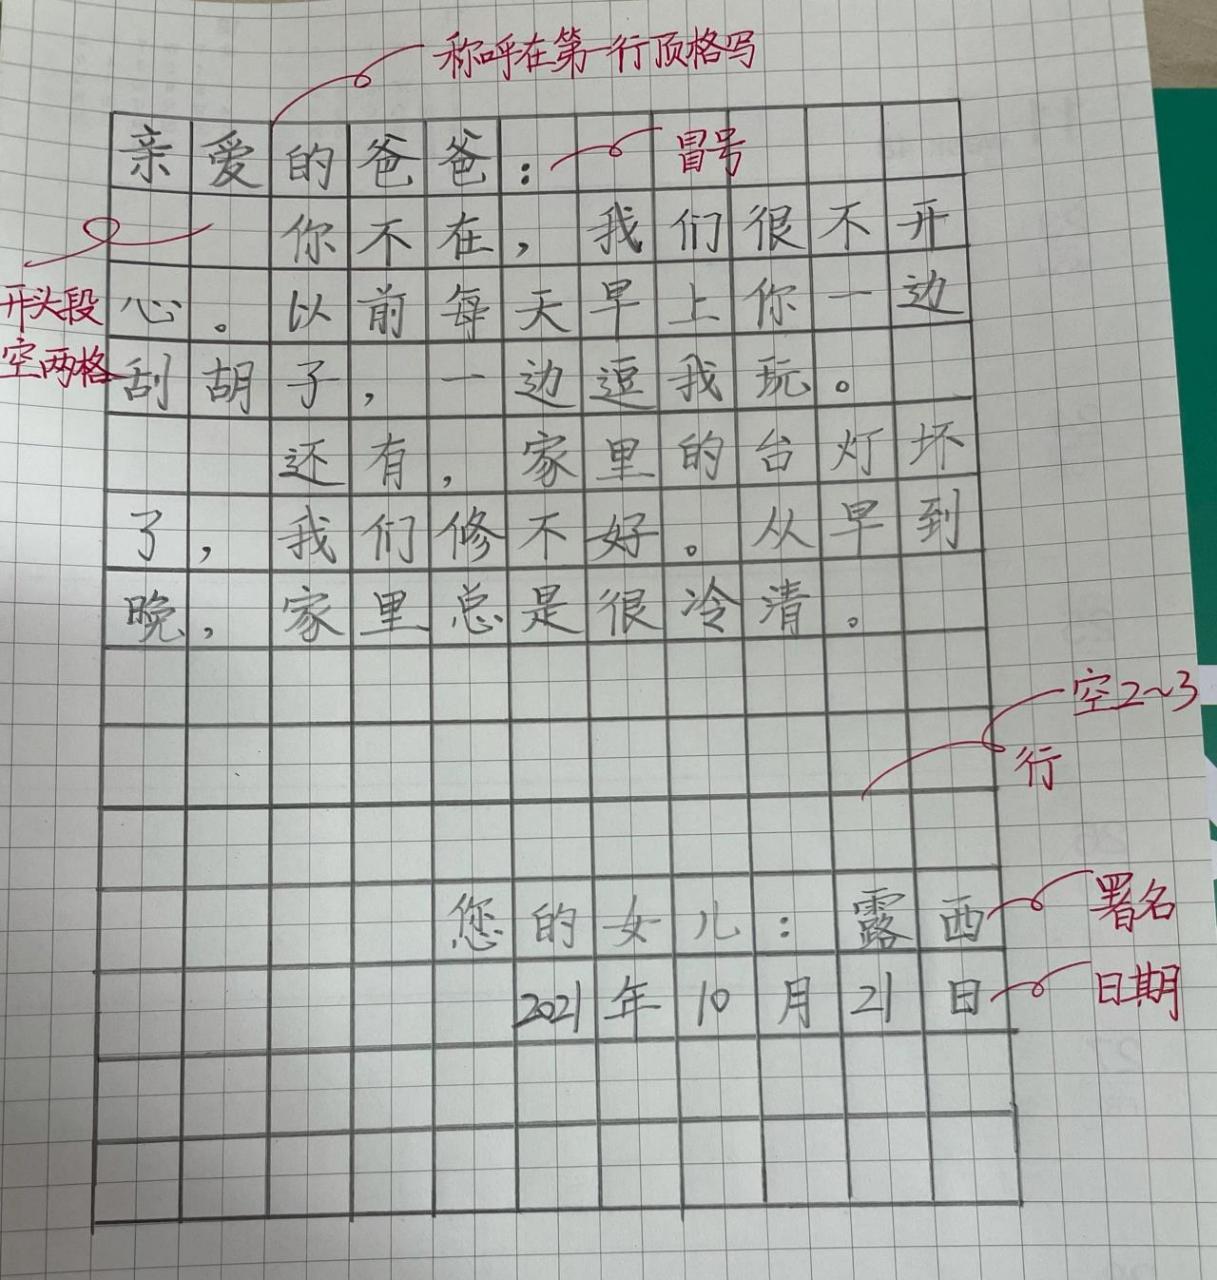 称呼在第一行顶格写
亲爱的爸爸：
冒号
你不在，我们很不开
开头段
空两格
心。以前每天早上你一边
刮胡子，一边逗我玩。
还有，家里的台灯坏
了，我们修不好。从早到
晚，家里总是很冷清。
空2~3
行
您的女儿：露西
署名
2021年10月21日
日期